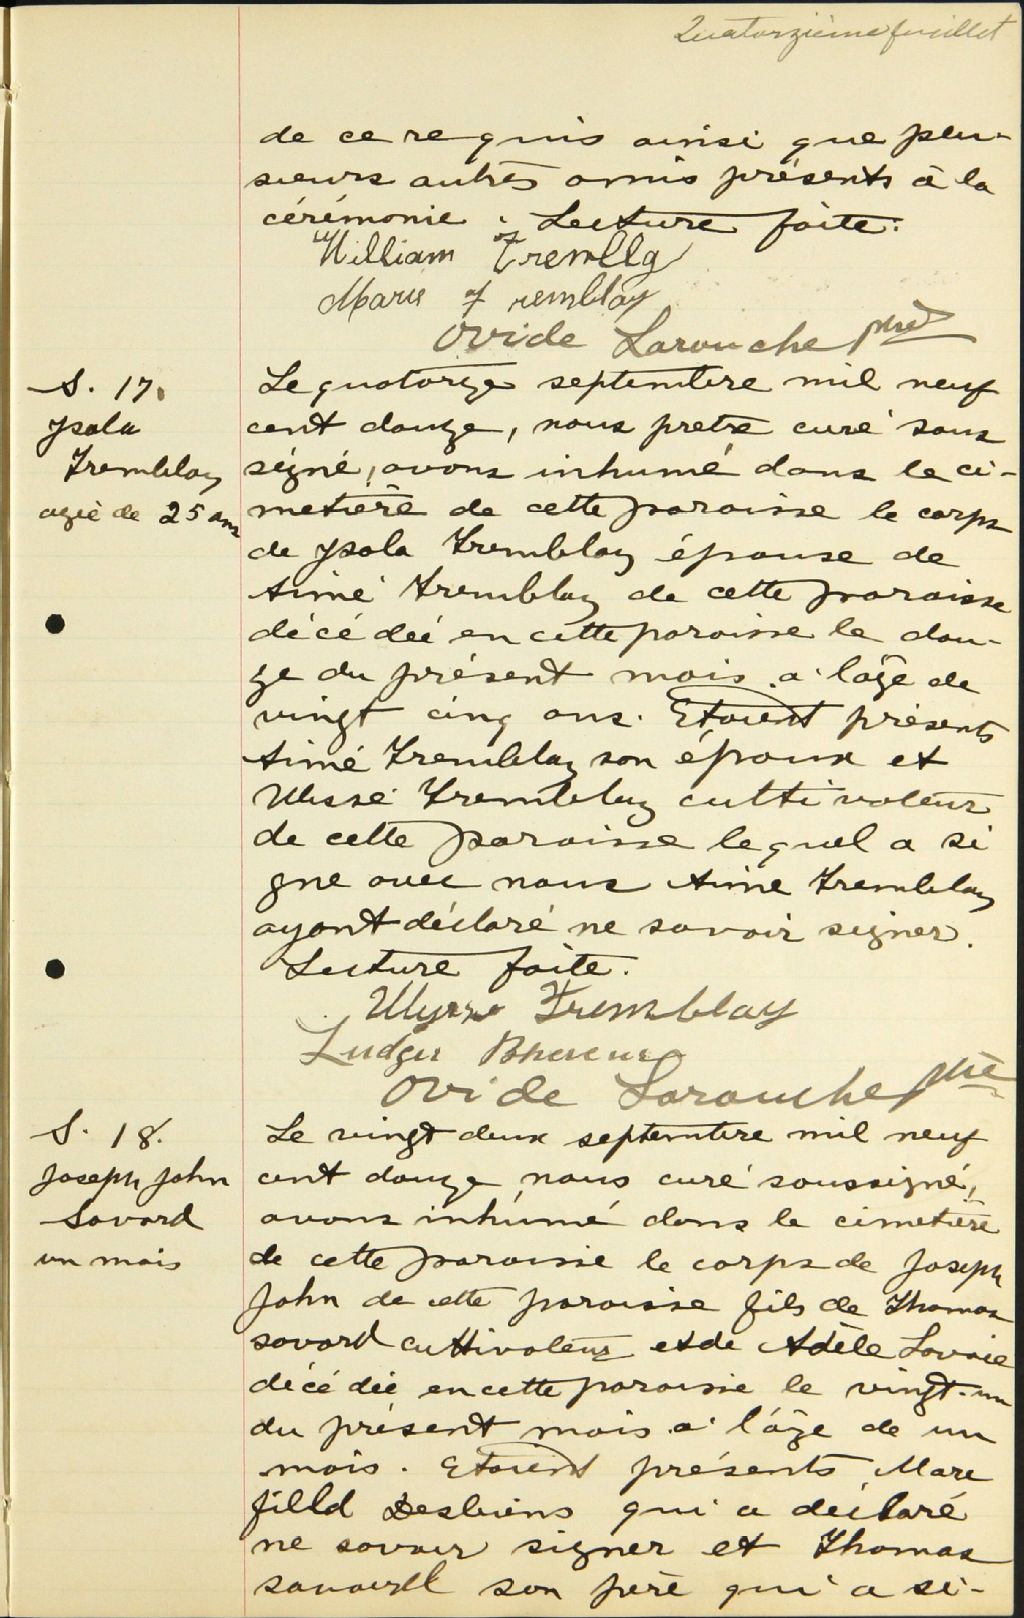 Quatorzième feuillet
de ce requis ainsi que plu-
sieurs autres amis présents à la
cérémonie. Lecture faite.
William Tremblay
Marie Tremblay
Ovide Larouche ptre
S. 17.
Ysola
Tremblay
agée de 25 ans
Le quatorze septembre mil neuf
cent douze, nous pretre curé sous
signé, avons inhumé dans le ci-
metière de cette paroisse le corps
de Ysola Tremblay épouse de
Aimé Tremblay de cette paroisse
décédée en cette paroisse le dou-
ze du présent mois a l'age de
vingt cinq ans. Etaient présents
Aimé Tremblay son époux et
Ulisse Tremblay cultivateur
de cette paroisse lequel a si
gne avec nous Aime Tremblay
ayant déclaré ne savoir signer.
Lecture faite.
Ulysse Tremblay
Ludger
Ovide Larouche ptre
S. 18.
Joseph John
Savard
un mois
Le vingt deux septembre mil neuf
cent douze nous curé soussigné,
avons inhumé dans le cimetière
de cette paroisse le corps de Joseph
John de cette paroisse fils de Thomas
Savard cultivateur et de Adèle Lavoie
décédée en cette paroisse le vingt-un
du présent mois a l'age de un
mois. Etaient présents
Desbiens qui a déclaré
ne savoir signer et Thomas
son père qui a si-